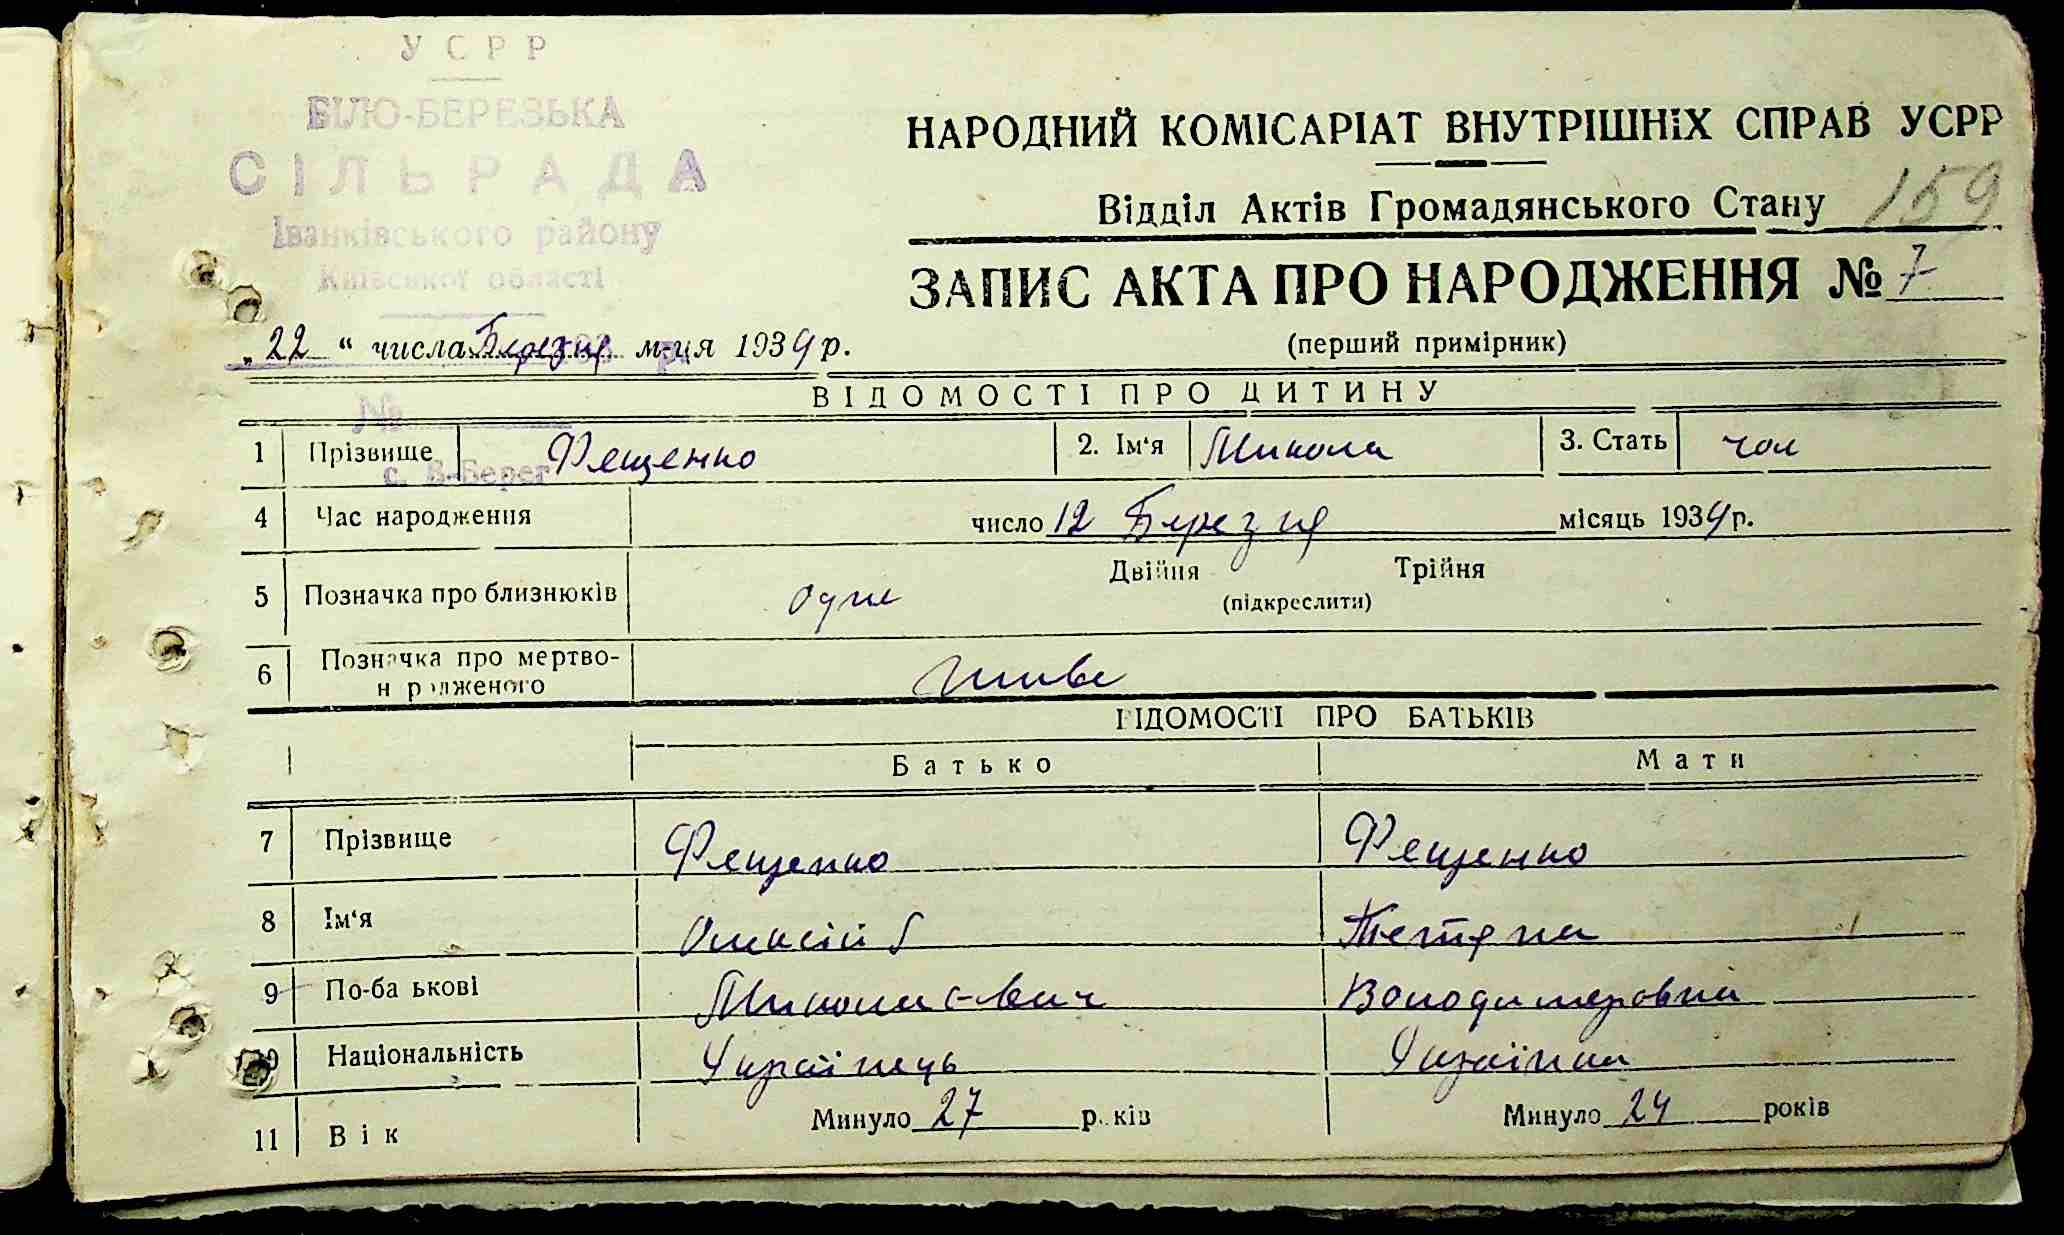 УСРР
БІЛО-БЕРЕЗЬКА
СІЛЬРАДА
Іванківського району
Київської області
НАРОДНИЙ КОМІСАРІАТ ВНУТРІШНІХ СПРАВ УСРР
Відділ Актів Громадянського Стану 159
ЗАПИС АКТА ПРО НАРОДЖЕННЯ № 7
(перший примірник)
„22“ числа Березня м-ця 1934 р.
№
с. Б-Берег
ВІДОМОСТІ ПРО ДИТИНУ
1 Прізвище Фещенко 2. Ім‘я Микола 3. Стать чол
4 Час народження число 12 Березня місяць 1934 р.
5 Позначка про близнюків одне Двійня Трійня
(підкреслити)
6 Позначка про мертво-
н р дженого живе
ВІДОМОСТІ ПРО БАТЬКІВ
Батько Мати
7 Прізвище Фещенко Фещенко
8 Ім‘я Олексій Тетяна
9 По-ба ькові Миколаєвич Володимеровна
10 Національність Українець Українка
11 Вік Минуло 27 р. ків Минуло 24 років